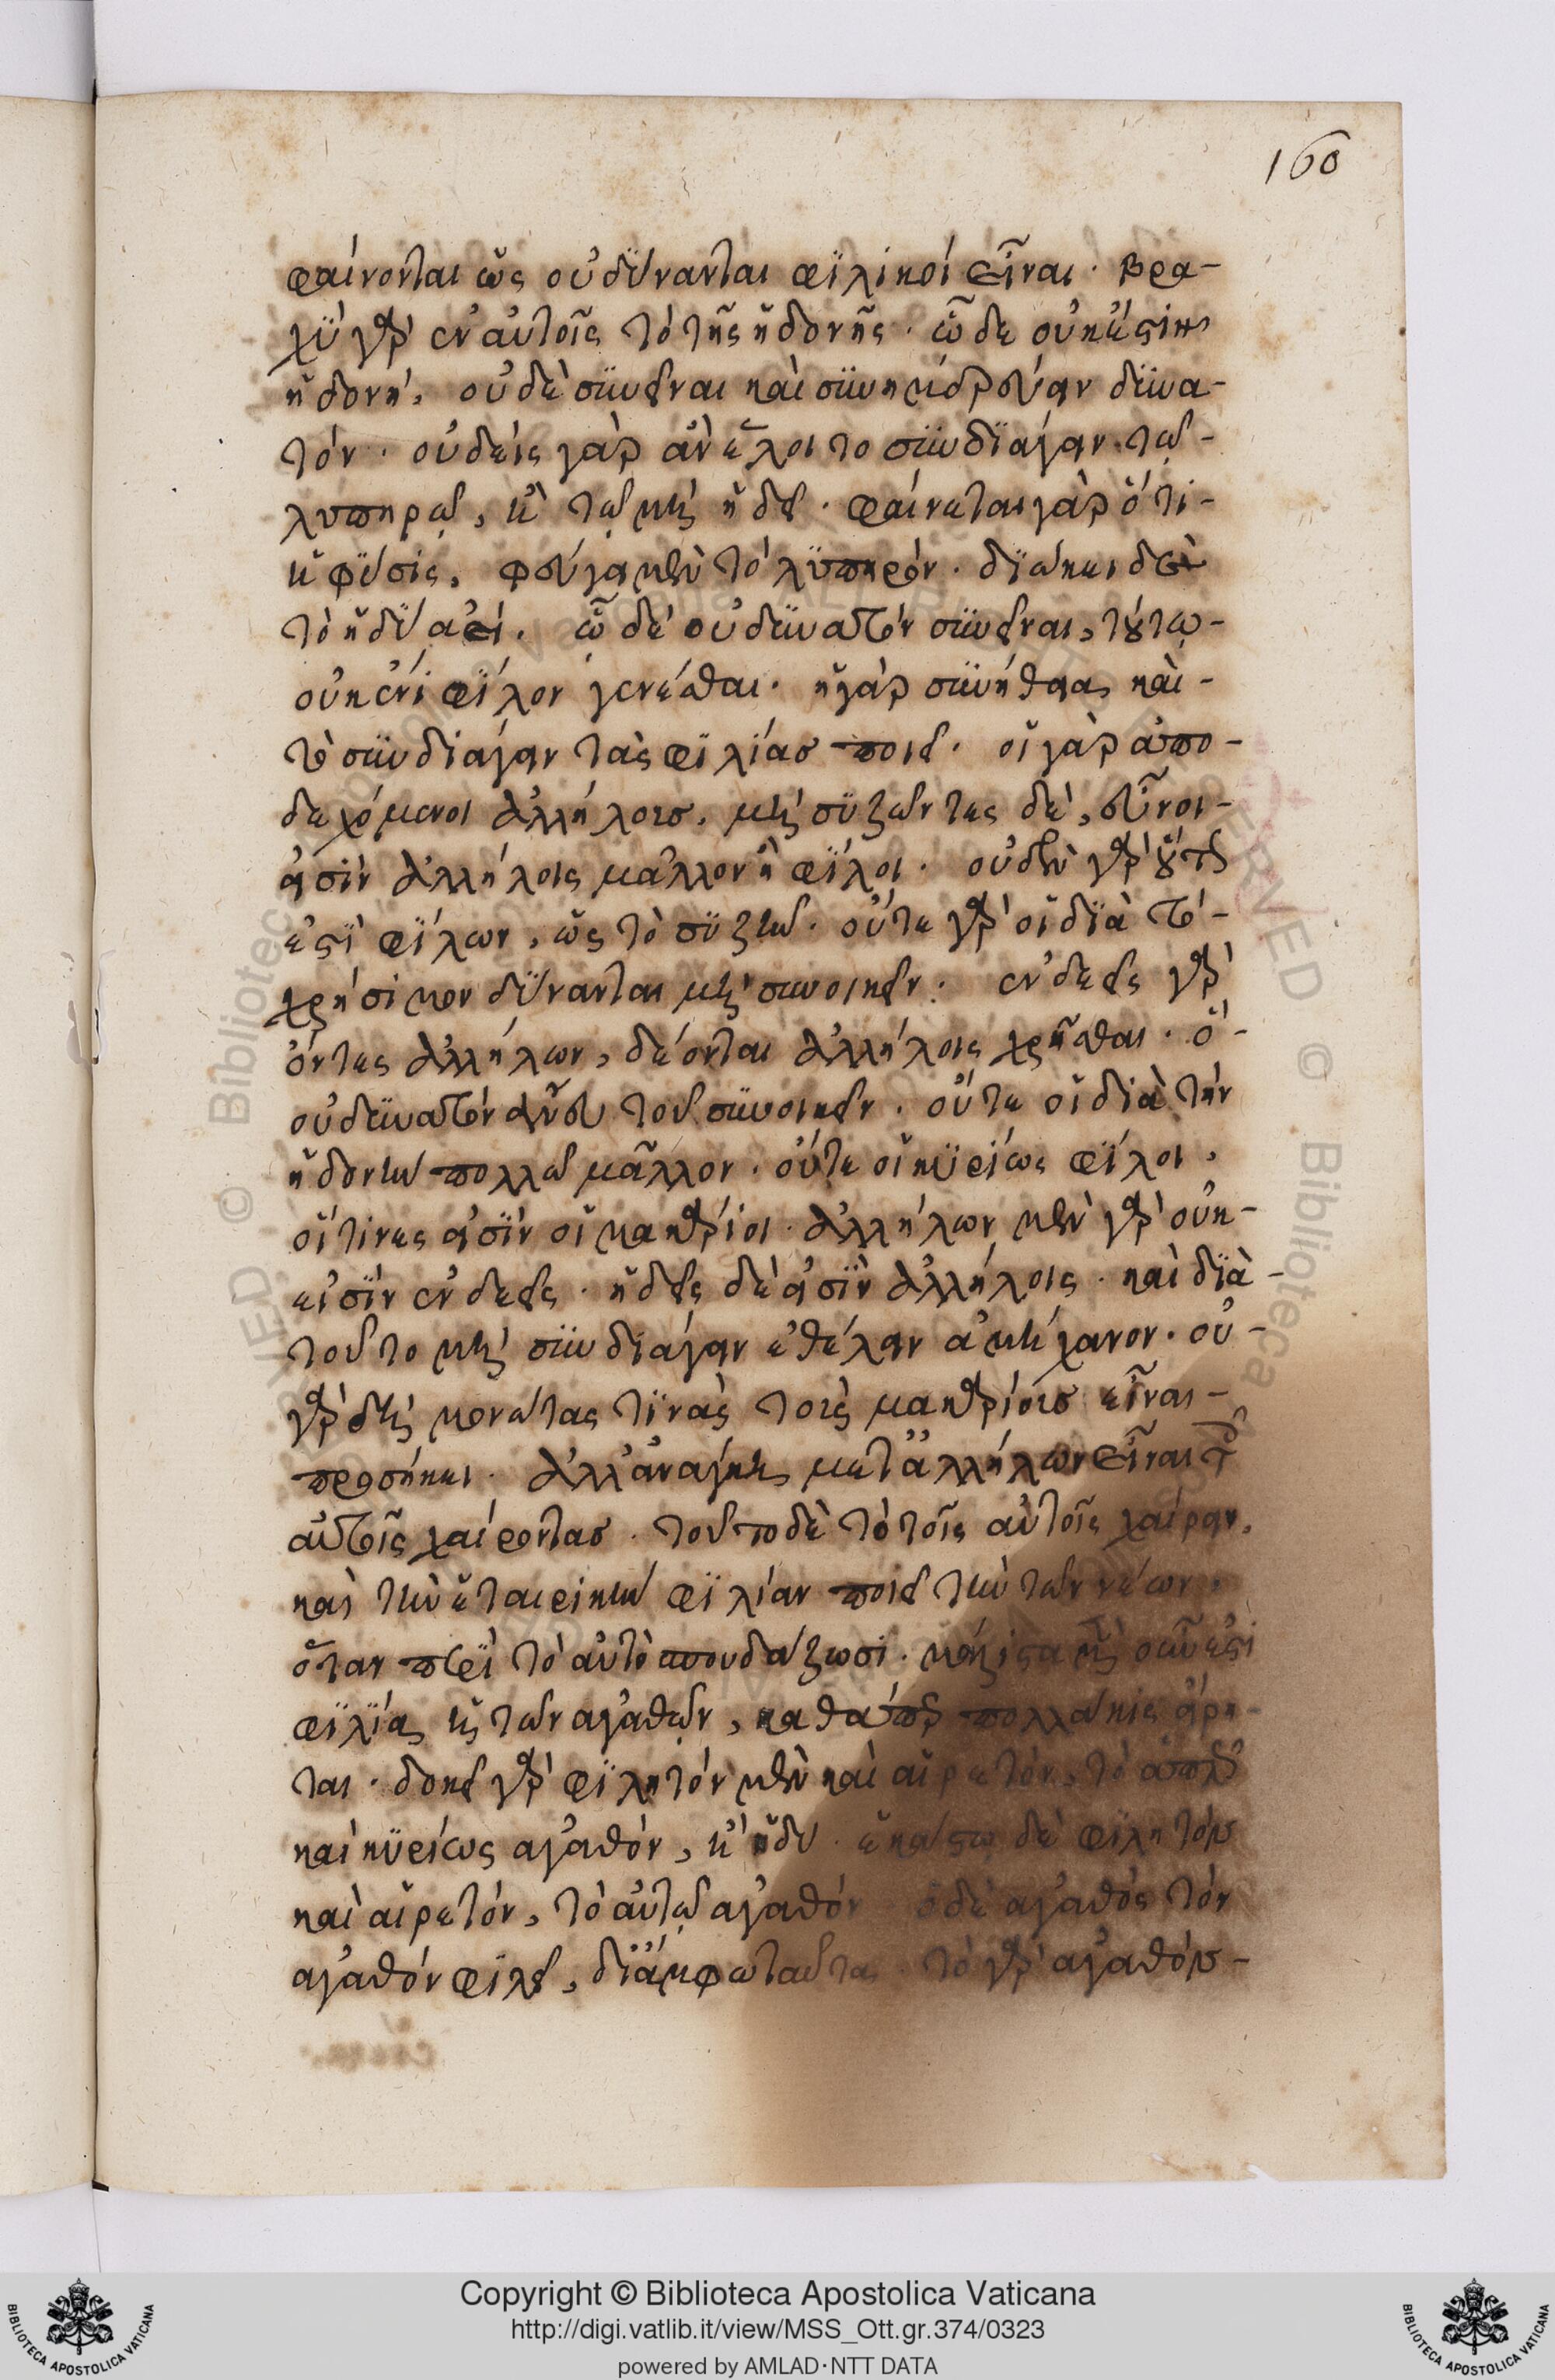 160
φαίνονται ὡς οὐ δύνανται φιλικοί εἶναι· βρα-
χὺ γὰρ ἐν αὐτοῖς τὸ τῆς ἡδονῆς· ᾧ δε οὐκ ἔστιν
ἡδονή, οὐδὲ συνεῖναι καὶ συνημερεύειν δυνα-
τόν· οὐδεὶς γὰρ ἂν ἕλοιτο συνδιάγειν τῷ-
λυπηρῷ, ἢ τῷ μὴ ἡδεῖ· φαίνεται γὰρ ὅτι-
ἡ φύσις, φεύγει μὲν τὸ λυπηρόν· διώκει δὲ
τὸ ἡδὺ ἀεί. ᾧ δὲ οὐ δυνατόν συνεῖναι, τούτῳ-
οὐκ ἐνὶ φίλον γενέσθαι· ἡ γὰρ συνήθεια, καὶ-
τὸ συνδιάγειν τὰς φιλίας ποιεῖ· οἱ γὰρ ἀπο-
δεχόμενοι ἀλλήλους, μὴ συζῶντες δέ, εὖνοι-
εἰσὶν ἀλλήλοις μᾶλλον ἢ φίλοι· οὐδὲν γὰρ οὕτως
ἐστὶ φίλων, ὡς τὸ συζῆν· οὔτε γὰρ οἱ διὰ τό-
χρήσιμον δύνανται μὴ συνοικεῖν· ἐνδεεῖς γὰρ
ὄντες ἀλλήλων, δέονται ἀλλήλοις χρῆσθαι· ὅ-
οὐ δυνατόν ἄνευ τοῦ συνοικεῖν· οὔτε οἱ διὰ τὴν
ἡδονὴν πολλῷ μᾶλλον· οὔτε οἱ κυρίως φίλοι,
οἵτινες εἰσὶν οἱ μακάριοι· ἀλλήλων μὲν γὰρ οὐκ-
εἰσὶν ἐνδεεῖς· ἡδεῖς δὲ εἰσὶν ἀλλήλοις· καὶ διὰ-
τοῦτο μὴ συνδιάγειν ἐθέλειν ἀμήχανον· οὐ-
γὰρ δὴ μονώτας τινὰς τοὺς μακαρίους εἶναι-
προσήκει· ἀλλ' ἀνάγκη, μετ' ἀλλήλων εἶναι τοῖς
αὐτοῖς χαίροντας· τοῦτο δὲ τὸ τοῖς αὐτοῖς χαίρειν,
καὶ τὴν ἑταιρικὴν φιλίαν ποιεῖ τὴν τῶν νέων,
ὅταν περὶ τὸ αὐτὸ σπουδάζωσι· μάλιστα μὲν οὖν ἐστι
φιλία, ἡ τῶν ἀγαθῶν, καθάπερ πολλάκις εἴρη-
ται· δοκεῖ γὰρ φιλητόν μὲν καὶ αἱρετόν, τὸ ἁπλῶς
καὶ κυρίως ἀγαθόν, ἢ ἡδύ· ἑκάστῳ δὲ φιλητόν
καὶ αἱρετόν, τὸ αὐτῷ ἀγαθόν· ὁ δὲ ἀγαθὸς τὸν
ἀγαθόν φιλεῖ, δι' ἄμφω ταῦτα· τὸ γὰρ ἀγαθόν-
Copyright © Biblioteca Apostolica Vaticana
http://digi.vatlib.it/view/MSS_Ott.gr.374/0323
powered by AMLAD·NTT DATA